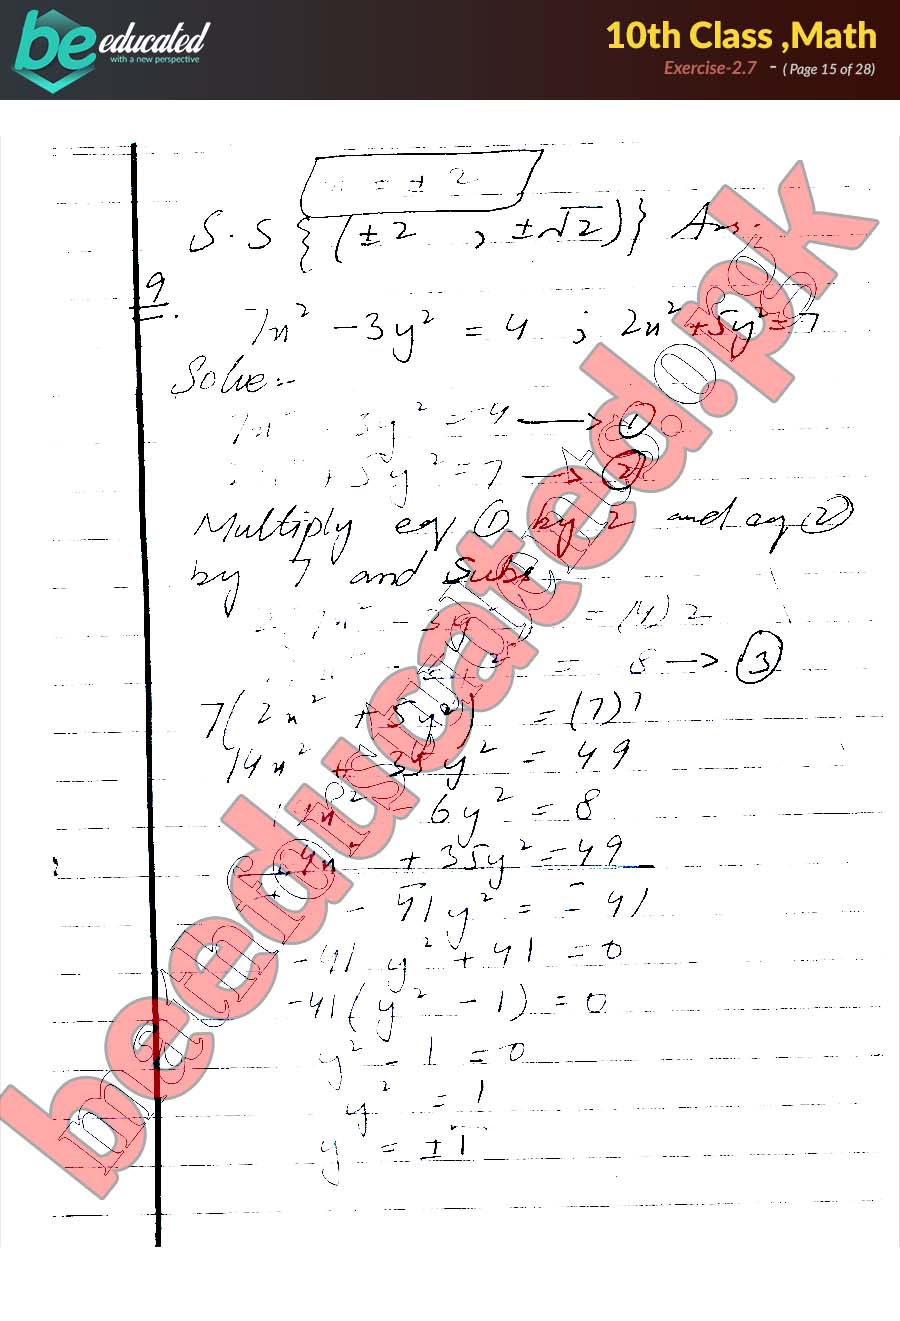 be educated
with a new perspective
10th Class ,Math
Exercise-2.7 - ( Page 15 of 28)
= ± 2
S.S {(±2 , ±√2)} Ans.
9.
7x² - 3y² = 4 ; 2x² + 5y² = 7
Solve:-
7x² - 3y² = 4 → ①
+ 5y² = 7 → ②
Multiply eq ① by 2 and eq ②
by 7 and Subt
= (4) 2
= 8 → ③
7(2x² + 5y²) = (7)7
14x² + 35y² = 49
14x² - 6y² = 8
14x² + 35y² = 49
- 41y² = - 41
-41 y² + 41 = 0
-41(y² - 1) = 0
y² - 1 = 0
y² = 1
y = ±√1
beeducated.pk